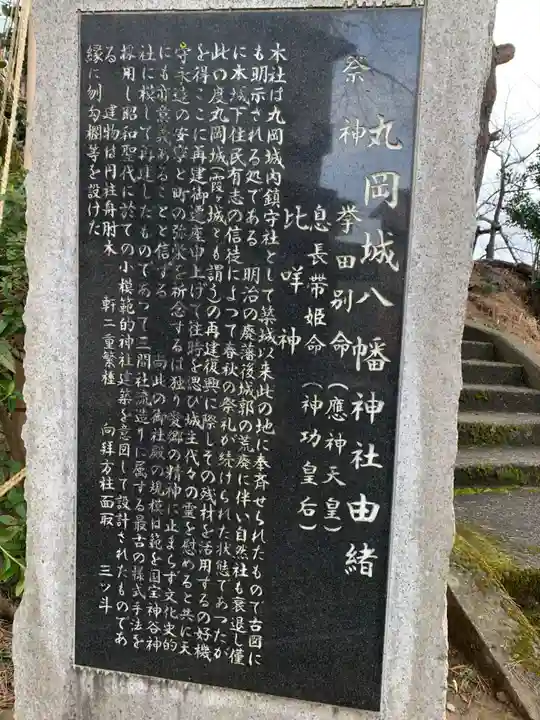 丸岡城八幡神社由緒
祭神 挙田別命(應神天皇)
息長帯姫命(神功皇后)
比咩神
本社は丸岡城内鎮守社として築城以来此の地に奉斉せられたもので古図に
も明示される処である 明治の廃藩後城郭の荒廃に伴い自然社も衰退し僅
に本城下住民有志の信徒によつて春秋の祭礼が続けられた状態であつたが
此の度丸岡城(霞ヶ城とも謂う)の再建復興に際しその残材を活用するの好機
を得ここに再建御遷座申上げて往時を偲び城主代々の霊を慰めると共に天
守永遠の安寧と町の弥栄を祈念するは独り愛郷の精神に止まらず文化史的
にも意義あることと信ずる 尚此の御社殿の規模は範を国宝神谷神
社に模して再建したものであつて三間社流造りに属する最古の様式手法を
採用し昭和聖代に於ての小模範的神社建築を意図して設計されたものであ
る 建物は円柱舟肘木 軒二重繁棰 向拝方柱面取 三ッ斗
縁に刎勾欄等を設けた